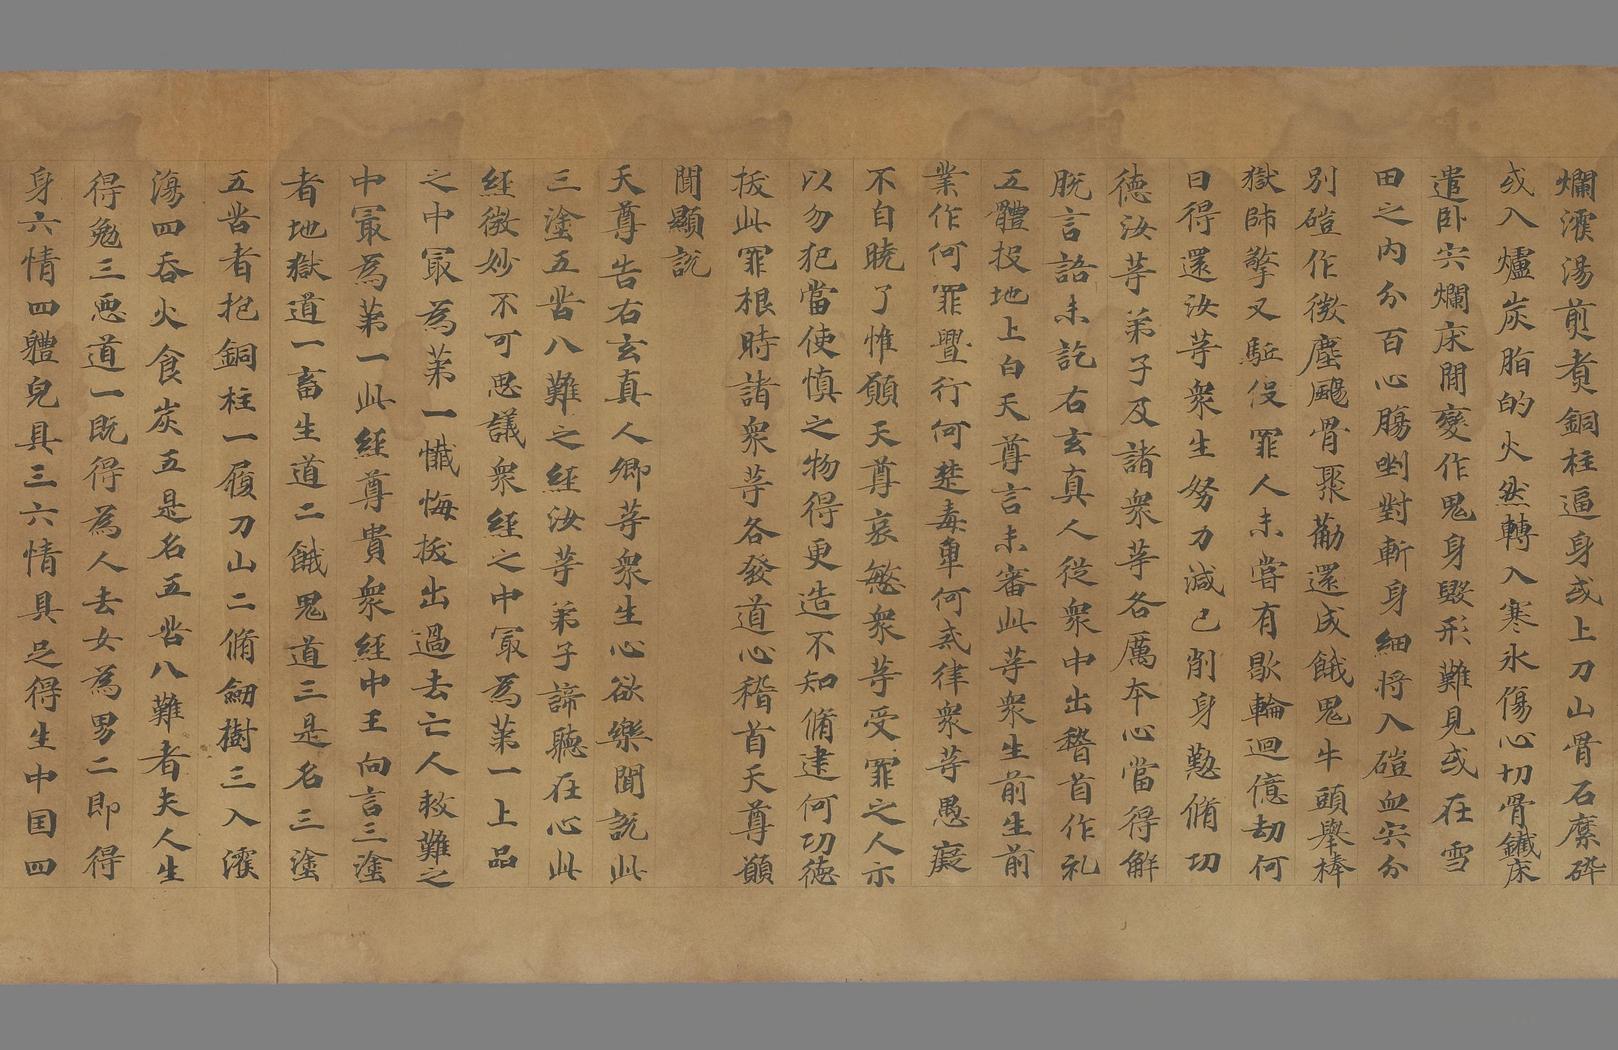 爛濩湯煎煮銅柱逼身或上刀山骨石糜碎
或入爐炭脂的火然轉入寒氷傷心切骨鐵床
遣卧宍爛床間變作鬼身毀形難見或在雪
田之內分百心膓㓨對斬身細將入磑血宍分
別磑作微塵颺骨聚勸還成餓鬼牛頭舉棒
獄師擎叉駈伇罪人未嘗有歇輪迴億劫何
日得還汝等衆生努力減己削身懃脩功
德汝等弟子及諸衆等各厲本心當得解
脫言語未訖右玄真人從衆中出稽首作礼
五體投地上白天尊言未審此等衆生前生前
業作何罪舋行何楚毒車何戒律衆等愚癡
不自曉了惟願天尊哀愍衆等受罪之人示
以勿犯當使慎之物得更造不知脩建何功德
拔此罪根時諸衆等各發道心稽首天尊願
聞顯說
天尊告右玄真人卿等衆生心欲樂聞說此
三塗五苦八難之經汝等弟子諦聽在心此
經微妙不可思議衆經之中冣為苐一上品
之中冣為苐一懺悔拔出過去亡人救難之
中冣為苐一此經尊貴衆經中王向言三塗
者地獄道一畜生道二餓鬼道三是名三塗
五苦者抱銅柱一履刀山二脩劒樹三入濩
湯四吞火食炭五是名五苦八難者夫人生
得免三惡道一既得為人去女為男二即得
身六情四體皃具三六情具足得生中国四